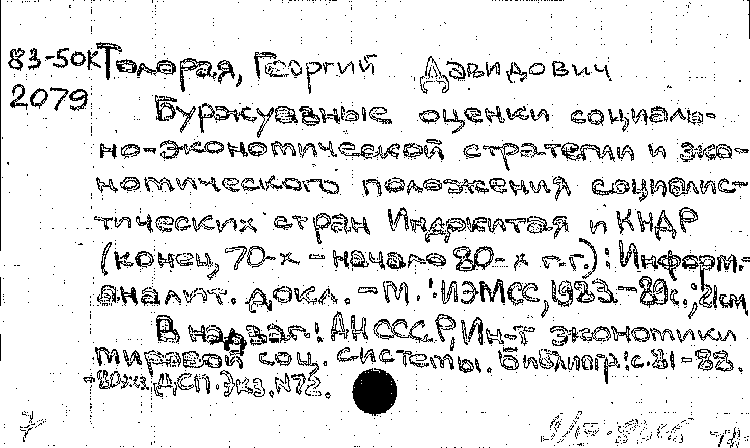 83-50К Толорая, Георгий Давидович
2079
Буржуазные оценки социаль-
но-экономической стратегии и эко-
номического положения социалис-
тических стран Индокитая и КНДР
(конец 70-х - начало 80-х г.г.): Информ.-
аналит. докл. - М.: ИЭМСС, 1983. - 89с.; 21см
В надзаг.: АН СССР, Ин-т экономики
мировой соц. системы. Библиогр.: с. 81-88.
- 80экз. ДСП. Экз. N72.